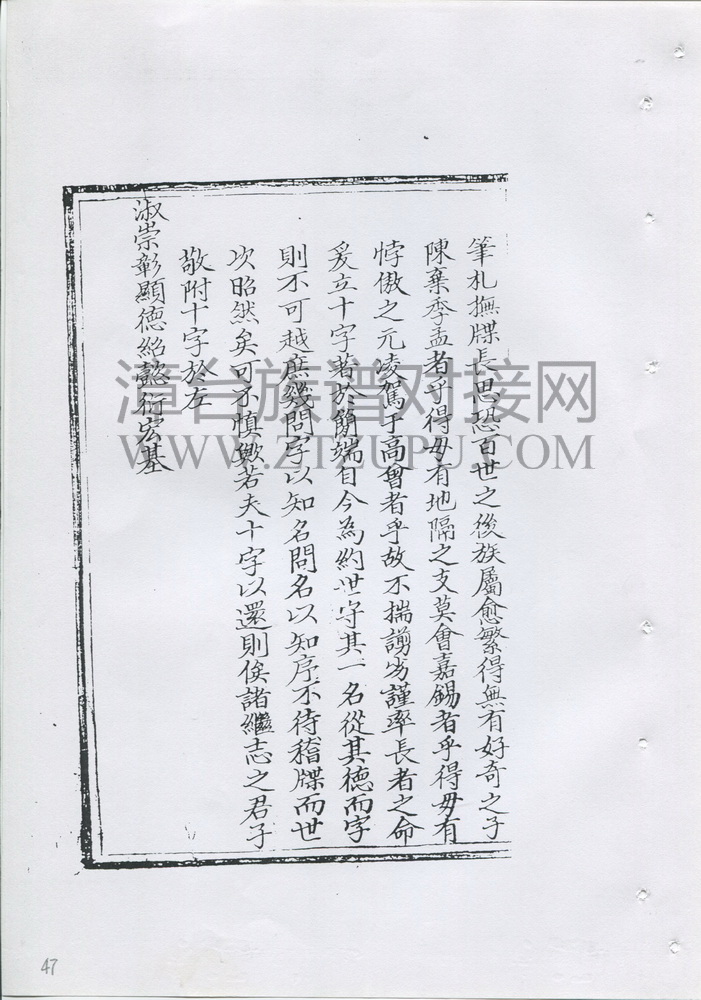 筆札撫牒長思恐百世之後族屬愈繁得無有好奇之子
陳棄季孟者乎得毋有地隔之支莫會嘉錫者乎得毋有
悖傲之元凌駕于高曾者乎故不揣謭劣謹率長者之命
爰立十字著於簡端自今為約世守其一名從其德而字
則不可越庶幾問字以知名問名以知序不待稽牒而世
次昭然矣可不慎歟若夫十字以還則俟諸繼志之君子
敬附十字於左
淑崇彰顯德紹懿衍宏基
漳台族谱对接网
WWW.ZTZUPU.COM
47